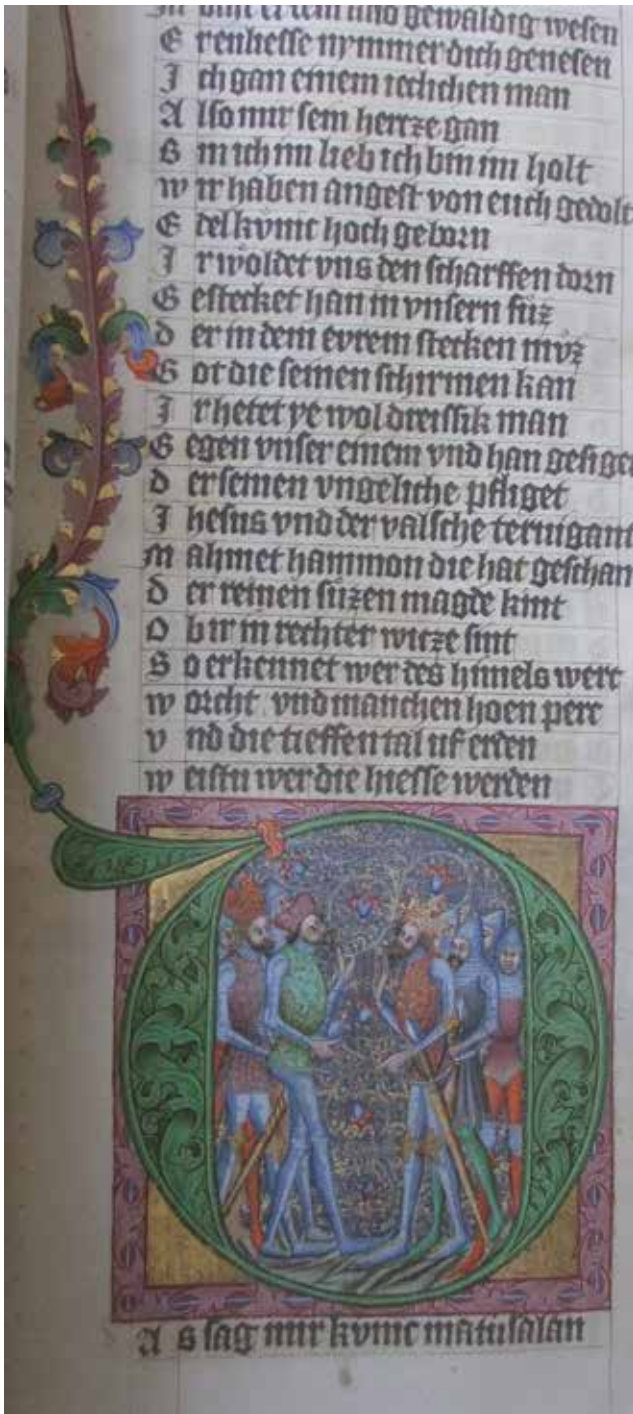 gewaldig wesen
E r enhesse nymmer dich genesen
I ch gan einem iechchen man
A lso mir sein hertze gan
B in ich im lieb ich bin im holt
w ir haben angest von euch gedolt
E del kvnic hoch geborn
I r woldet vns den scharffen dorn
G estecket han in vnsern fuz
d er in dem evrem stecken mvz
G ot die seinen schirmen kan
I r hetet ye wol dreissik man
G egen vnser einem vnd han gesiget
d er seinen vngeliche pfliget
I hesus vnd der valsche teruigant
M ahmet hammon die hat geschan
d er reinen suzen magde kint
O b ir in rechter witze sint
S o erkennet wer des himels wert
w orcht vnd manchen hoen perc
v nd die tieffen tal uf erden
w eistu wer die hiesse werden
A s sag mir kvnic matusalan